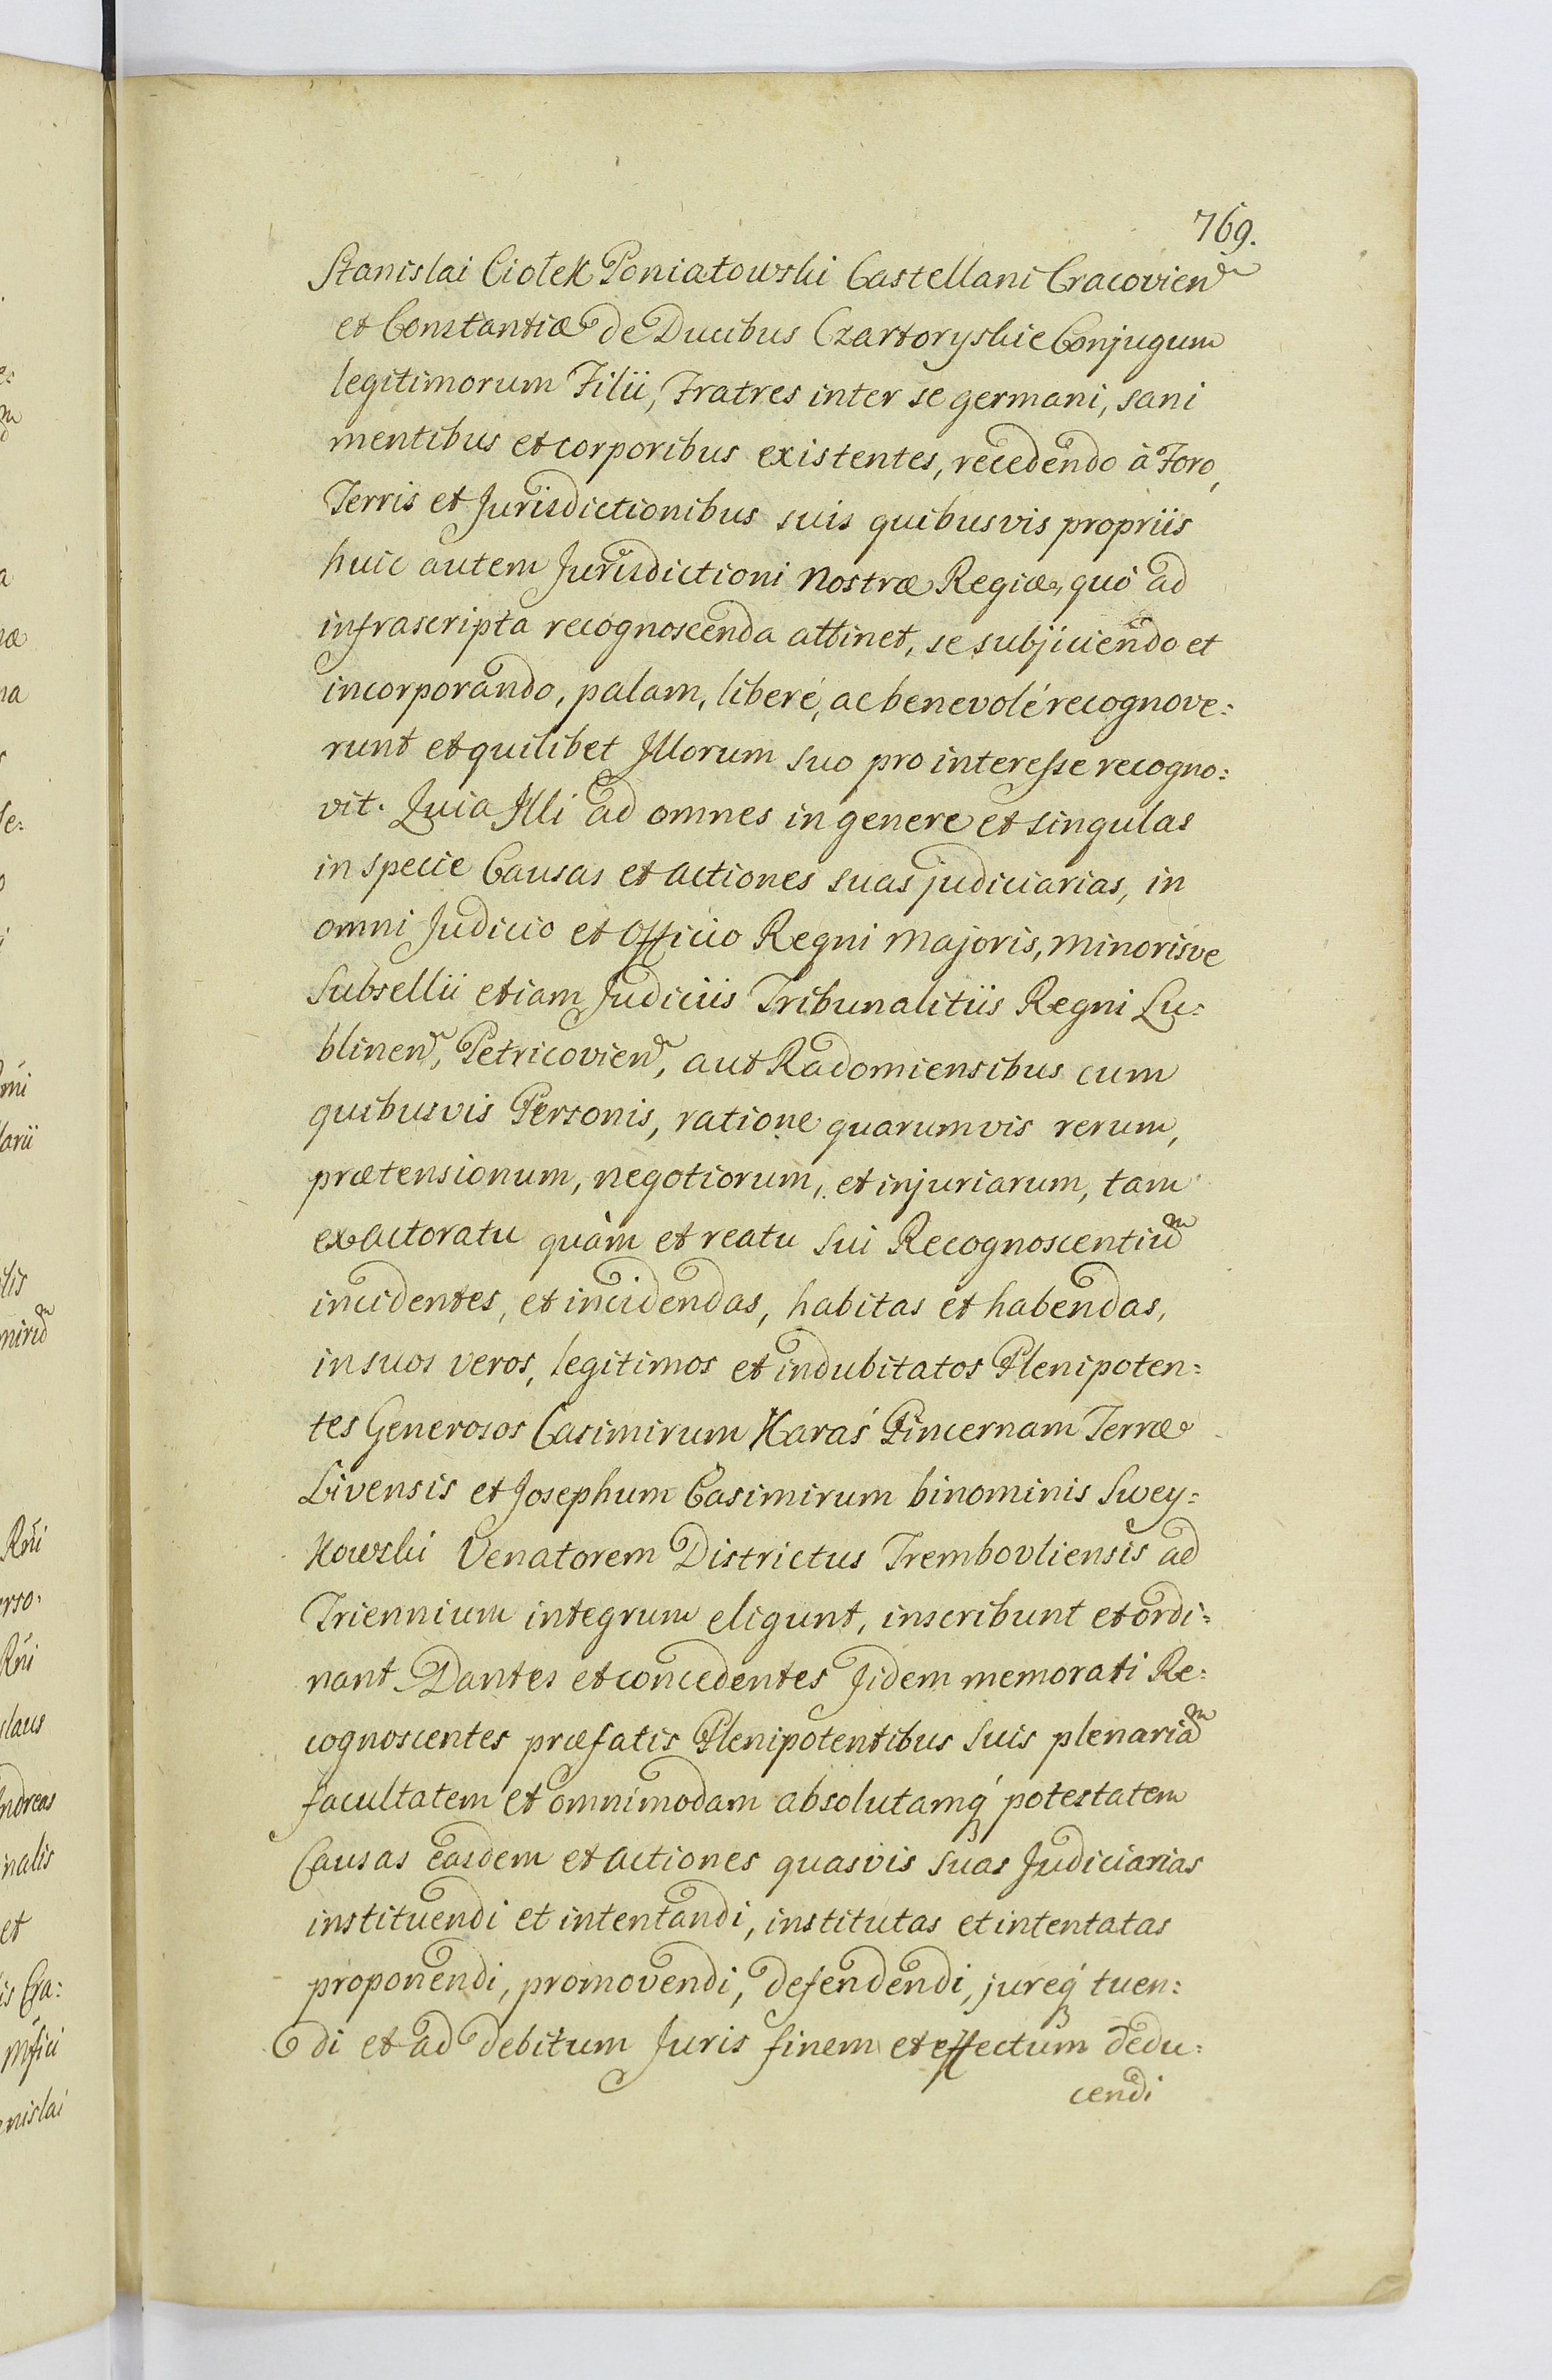 769.
Stanislai Ciołek Poniatowski Castellani Cracovien
et Constantiæ de Ducibus Czartoryskie Conjugum
legitimorum Filii, Fratres inter se germani, sani
mentibus et corporibus existentes, recedendo à Foro,
Terris et Jurisdictionibus suis quibusvis propriis
huic autem Jurisdictioni Nostræ Regiæ, quò ad
infrascripta recognoscenda attinet, se subjiciendo et
incorporando, palam, liberé, ac benevolé recognove:
runt et quilibet Illorum suo pro interesse recogno:
vit. Quia Illi ad omnes in genere et singulas
in specie Causas et actiones suas judiciarias, in
omni Judicio et Officio Regni Majoris, Minorisve
Subsellii etiam Judiciis Tribunalitiis Regni Lu:
blinen, Petricovien, aut Radomiensibus cum
quibusvis Personis, ratione quarumvis rerum,
prætensionum, negotiorum, et injuriarum, tam
ex actoratu quàm et reatu sui Recognoscentiũ
incidentes, et incidendas, habitas et habendas,
in suos veros, legitimos et indubitatos Plenipoten:
tes Generosos Casimirum Karaś Pincernam Terræ
Livensis et Josephum Casimirum binominis Swey:
kowski Venatorem Districtus Trembovliensis ad
Triennium integrum eligunt, inscribunt et ordi:
nant. Dantes et concedentes Iidem memorati Re:
cognoscentes præfatis Plenipotentibus suis plenariã
facultatem et omnimodam absolutamq́ potestatem
Causas easdem et actiones quasvis suas Judiciarias
instituendi et intentandi, institutas et intentatas
proponendi, promovendi, defendendi, jureq́ tuen:
di et ad debitum Juris finem et effectum dedu:
cendi